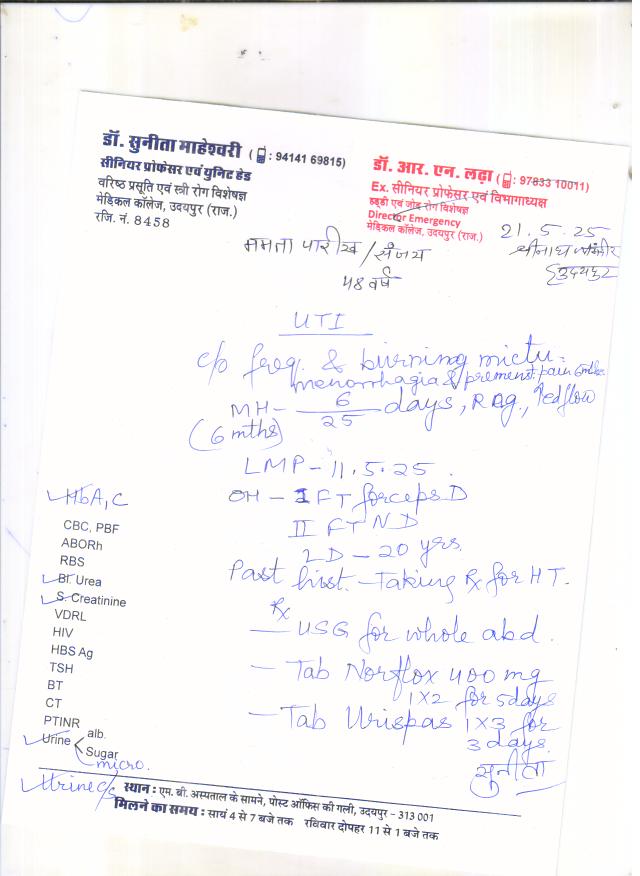 डॉ. सुनीता माहेश्वरी ( : 94141 69815)
सीनियर प्रोफेसर एवं युनिट हेड
वरिष्ठ प्रसूति एवं स्त्री रोग विशेषज्ञ
मेडिकल कॉलेज, उदयपुर (राज.)
रजि. नं. 8458
डॉ. आर. एन. लढ़ा ( : 97833 10011)
Ex. सीनियर प्रोफेसर एवं विभागाध्यक्ष
हड्डी एवं जोड़ रोग विशेषज्ञ
Director Emergency
मेडिकल कॉलेज, उदयपुर (राज.)
21.5.25
ममता पारीख / संजय
श्रीनाथ
उदयपुर
48 वर्ष
UTI
c/o freq. & burning mictu.
menorrhagia & premenst. pain 6mths
MH - 6/25 days, Reg., ↑ed flow
(6 mths)
LMP - 11.5.25.
OH - I FT forceps D
II FTND
LD - 20 yrs.
Past hist. - Taking Rx for HT.
Rx
- USG for whole abd.
- Tab Norflox 400 mg
1x2 for 5 days
- Tab Urispas 1x3 for
3 days.
सुनीता
HbA1C
CBC, PBF
ABORh
RBS
Bl. Urea
S. Creatinine
VDRL
HIV
HBS Ag
TSH
BT
CT
PTINR
Urine < alb.
Sugar
micro.
Urine c/s
स्थान : एम. बी. अस्पताल के सामने, पोस्ट ऑफिस की गली, उदयपुर - 313 001
मिलने का समय : सायं 4 से 7 बजे तक रविवार दोपहर 11 से 1 बजे तक